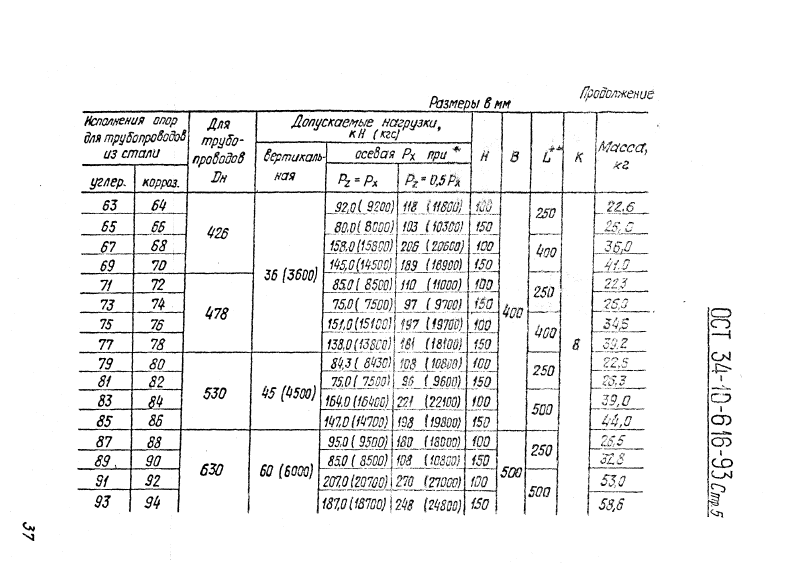 Продолжение
Размеры в мм
Исполнения опор для трубопроводов из стали
Для трубопроводов Dн
Допускаемые нагрузки, кН (кгс)
H
B
L**
K
Масса, кг
вертикальная
осевая Px при *
углер.
корроз.
Pz = Px
Pz = 0,5 Px
63 64 426 36 (3600) 92,0 (9200) 118 (11800) 100 400 250 8 22.6
65 66 80,0 (8000) 103 (10300) 150 26,0
67 68 158,0 (15800) 206 (20600) 100 400 36,0
69 70 145,0 (14500) 189 (18900) 150 41.0
71 72 478 85,0 (8500) 110 (11000) 100 250 22,3
73 74 75,0 (7500) 97 (9700) 150
75 76 151,0 (15100) 197 (19700) 100 400
77 78 138,0 (13800) 181 (18100) 150
79 80 530 45 (4500) 84,3 (8430) 108 (10800) 100 250
81 82 75,0 (7500) 96 (9600) 150
83 84 164,0 (16400) 221 (22100) 100 500 39,0
85 86 147,0 (14700) 198 (19800) 150 44,0
87 88 630 60 (6000) 95,0 (9500) 180 (18000) 100 500 250
89 90 85,0 (8500) 108 (10800) 150 32,8
91 92 207,0 (20700) 270 (27000) 100 500 53,0
93 94 187,0 (18700) 248 (24800) 150 58,6
ОСТ 34-10-616-93 Стр.5
37